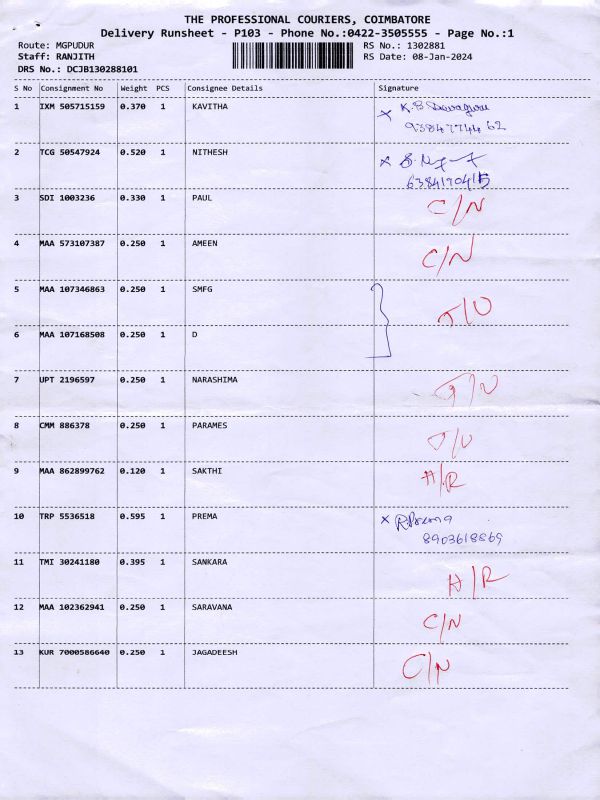 THE PROFESSIONAL COURIERS, COIMBATORE
Delivery Runsheet - P103 - Phone No.:0422-3505555 - Page No.:1
Route: MGPUDUR RS No.: 1302881
Staff: RANJITH RS Date: 08-Jan-2024
DRS No.: DCJB130288101
S No Consignment No Weight PCS Consignee Details Signature
1 IXM 505715159 0.370 1 KAVITHA
2 TCG 50547924 0.520 1 NITHESH
6384190415
3 SDI 1003236 0.330 1 PAUL C/N
4 MAA 573107387 0.250 1 AMEEN C/N
5 MAA 107346863 0.250 1 SMFG
6 MAA 107168508 0.250 1 D
7 UPT 2196597 0.250 1 NARASHIMA
8 CMM 886378 0.250 1 PARAMES
9 MAA 862899762 0.120 1 SAKTHI H/R
10 TRP 5536518 0.595 1 PREMA
8903618869
11 TMI 30241180 0.395 1 SANKARA H/R
12 MAA 102362941 0.250 1 SARAVANA C/N
13 KUR 7000586640 0.250 1 JAGADEESH C/N